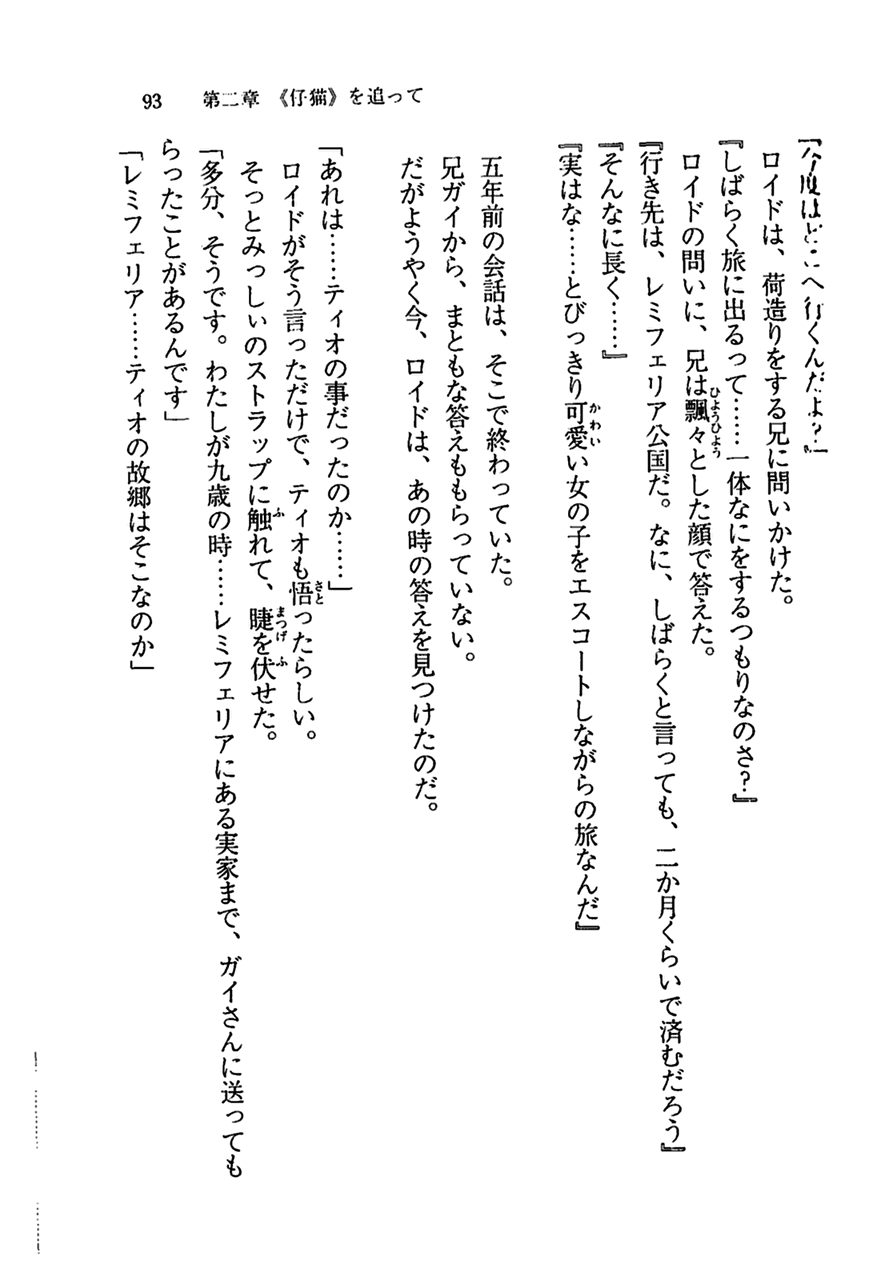 93　第二章　《仔猫》を追って
『今度はどこへ行くんだよ？』
ロイドは、荷造りをする兄に問いかけた。
『しばらく旅に出るって……一体なにをするつもりなのさ？』
ロイドの問いに、兄は飄々とした顔で答えた。
『行き先は、レミフェリア公国だ。なに、しばらくと言っても、二か月くらいで済むだろう』
『そんなに長く……』
『実はな……とびっきり可愛い女の子をエスコートしながらの旅なんだ』
五年前の会話は、そこで終わっていた。
兄ガイから、まともな答えももらっていない。
だがようやく今、ロイドは、あの時の答えを見つけたのだ。
「あれは……ティオの事だったのか……」
ロイドがそう言っただけで、ティオも悟ったらしい。
そっとみっしぃのストラップに触れて、睫を伏せた。
「多分、そうです。わたしが九歳の時……レミフェリアにある実家まで、ガイさんに送っても
らったことがあるんです」
「レミフェリア……ティオの故郷はそこなのか」